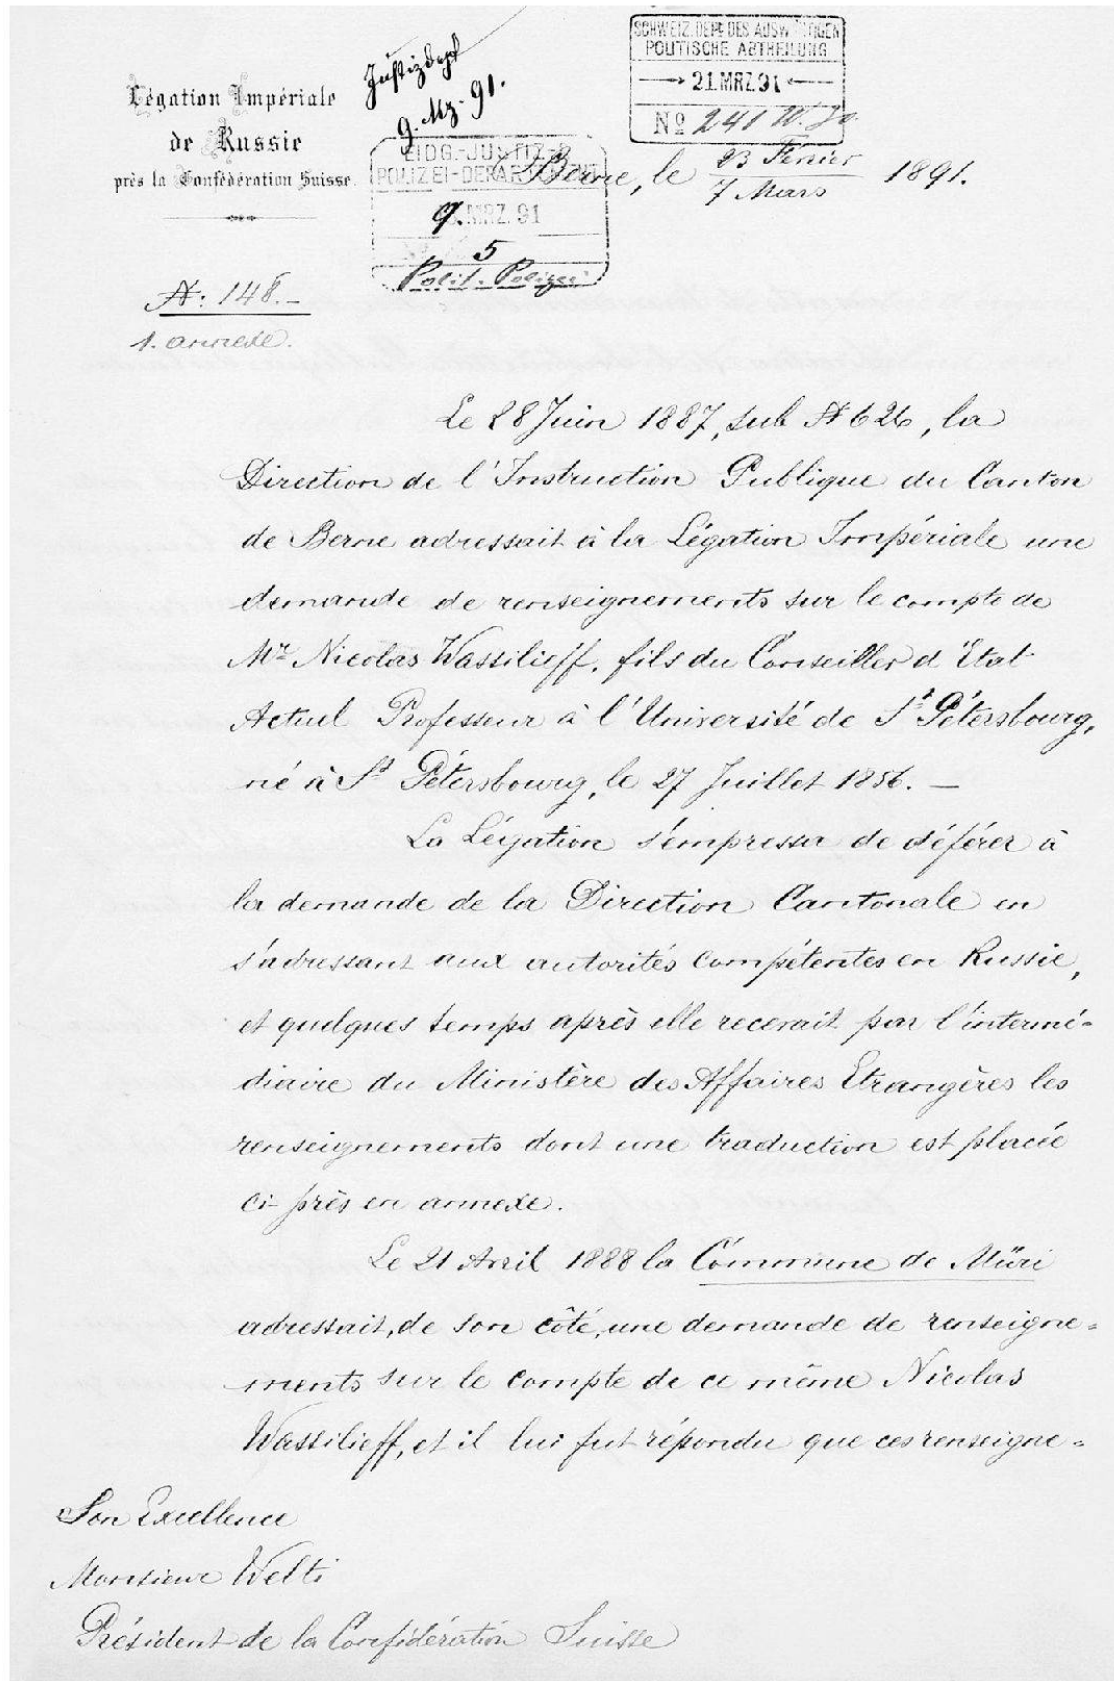 Légation Impériale
de Russie
près la Confédération Suisse.
Justizdept
9. Mz. 91.
SCHWEIZ. DEPT DES AUSWÄRTIGEN
POLITISCHE ABTHEILUNG
21 MRZ 91
No 241
EIDG. JUSTIZ- &
POLIZEI-DEPARTEMENT
9. MRZ. 91
5
Polit. Polizei
Berne, le 23 Février / 7 Mars 1891.
N: 148.-
1. annexe.
Le 28 Juin 1887, sub N 626, la
Direction de l'Instruction Publique du Canton
de Berne adressait à la Légation Impériale une
demande de renseignements sur le compte de
Mr Nicolas Wassilieff, fils du Conseiller d'Etat
Actuel Professeur à l'Université de St Pétersbourg,
né à St Pétersbourg, le 27 Juillet 1856. —
La Légation s'empressa de déférer à
la demande de la Direction Cantonale en
s'adressant aux autorités compétentes en Russie,
et quelques temps après elle recevait par l'intermé-
diaire du Ministère des Affaires Etrangères les
renseignements dont une traduction est placée
ci-près en annexe.
Le 21 Avril 1888 la Commune de Müri
adressait, de son côté, une demande de renseigne-
ments sur le compte de ce même Nicolas
Wassilieff, et il lui fut répondu que ces renseigne-
Son Excellence
Monsieur Welti
Président de la Confédération Suisse